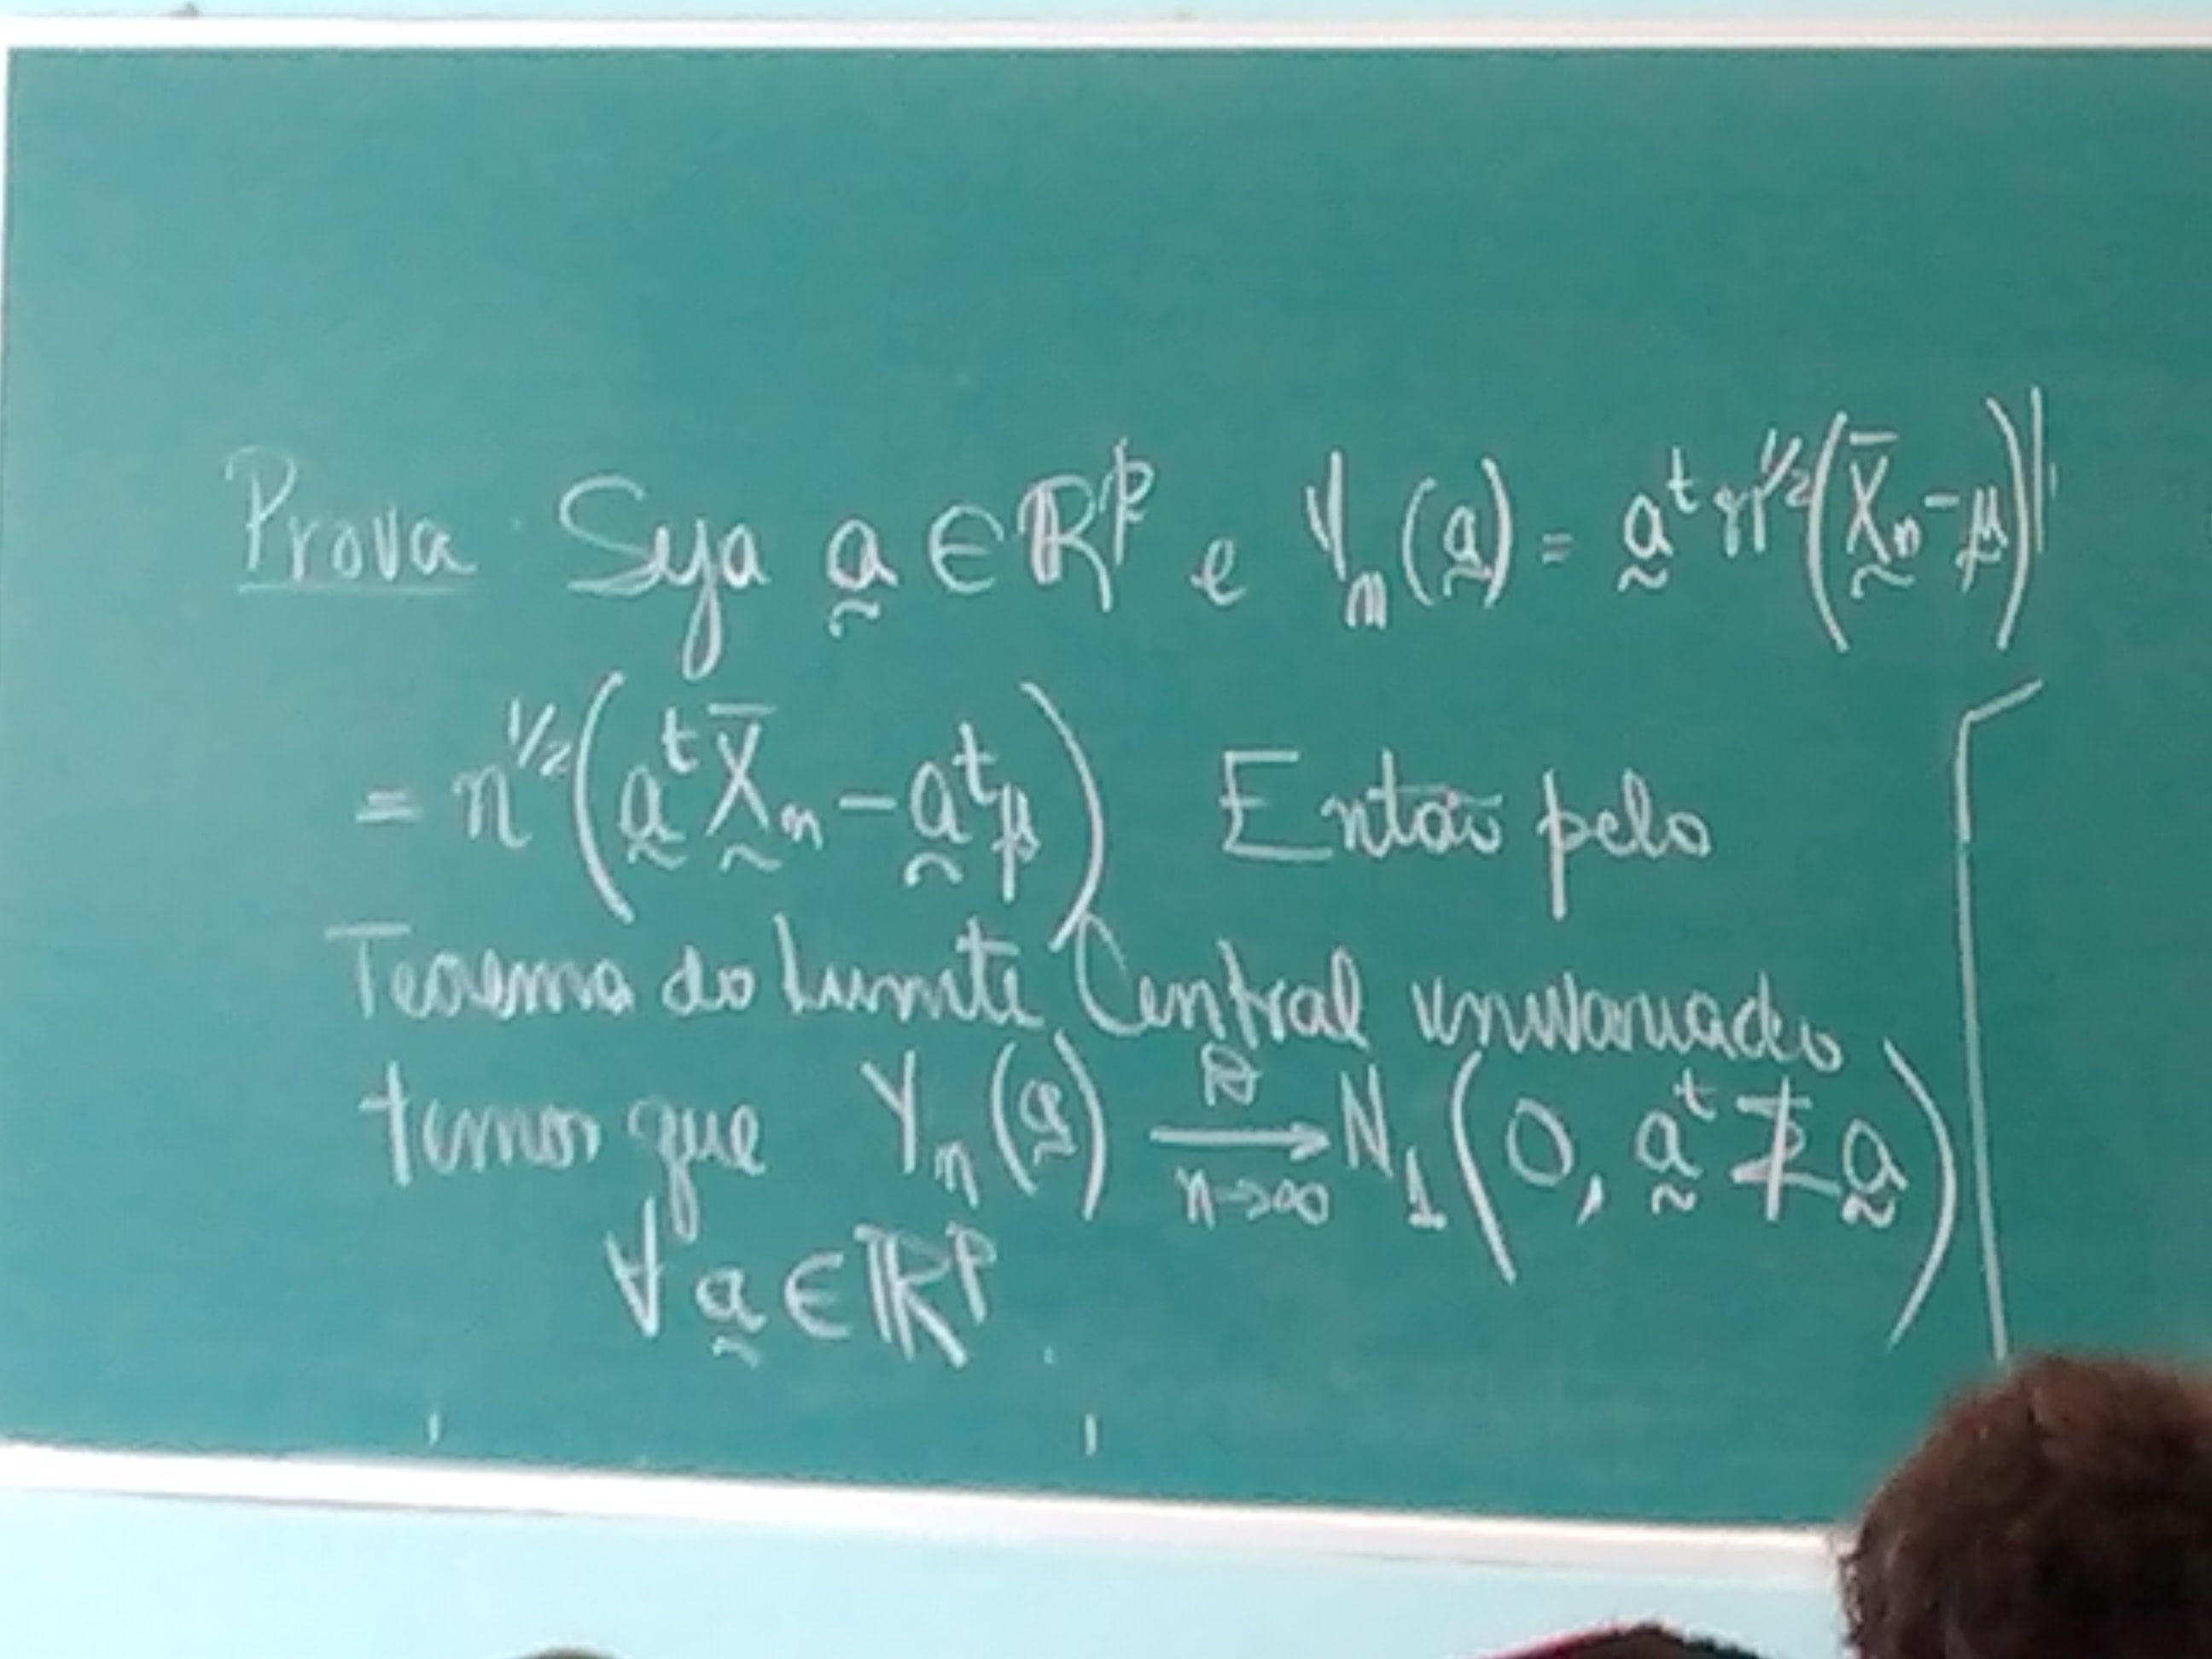 Prova. Seja a̰ ∈ ℝᵖ e Yₙ(a̰) = a̰ᵗ n^{1/2}(X̰̄ₙ - μ̰)
= n^{1/2}(a̰ᵗ X̰̄ₙ - a̰ᵗ μ̰) Então pelo
Teorema do Limite Central univariado
temos que Yₙ(a̰) \xrightarrow[n→∞]{𝒟} N₁(0, a̰ᵗ Σ̰ a̰)
∀ a̰ ∈ ℝᵖ.